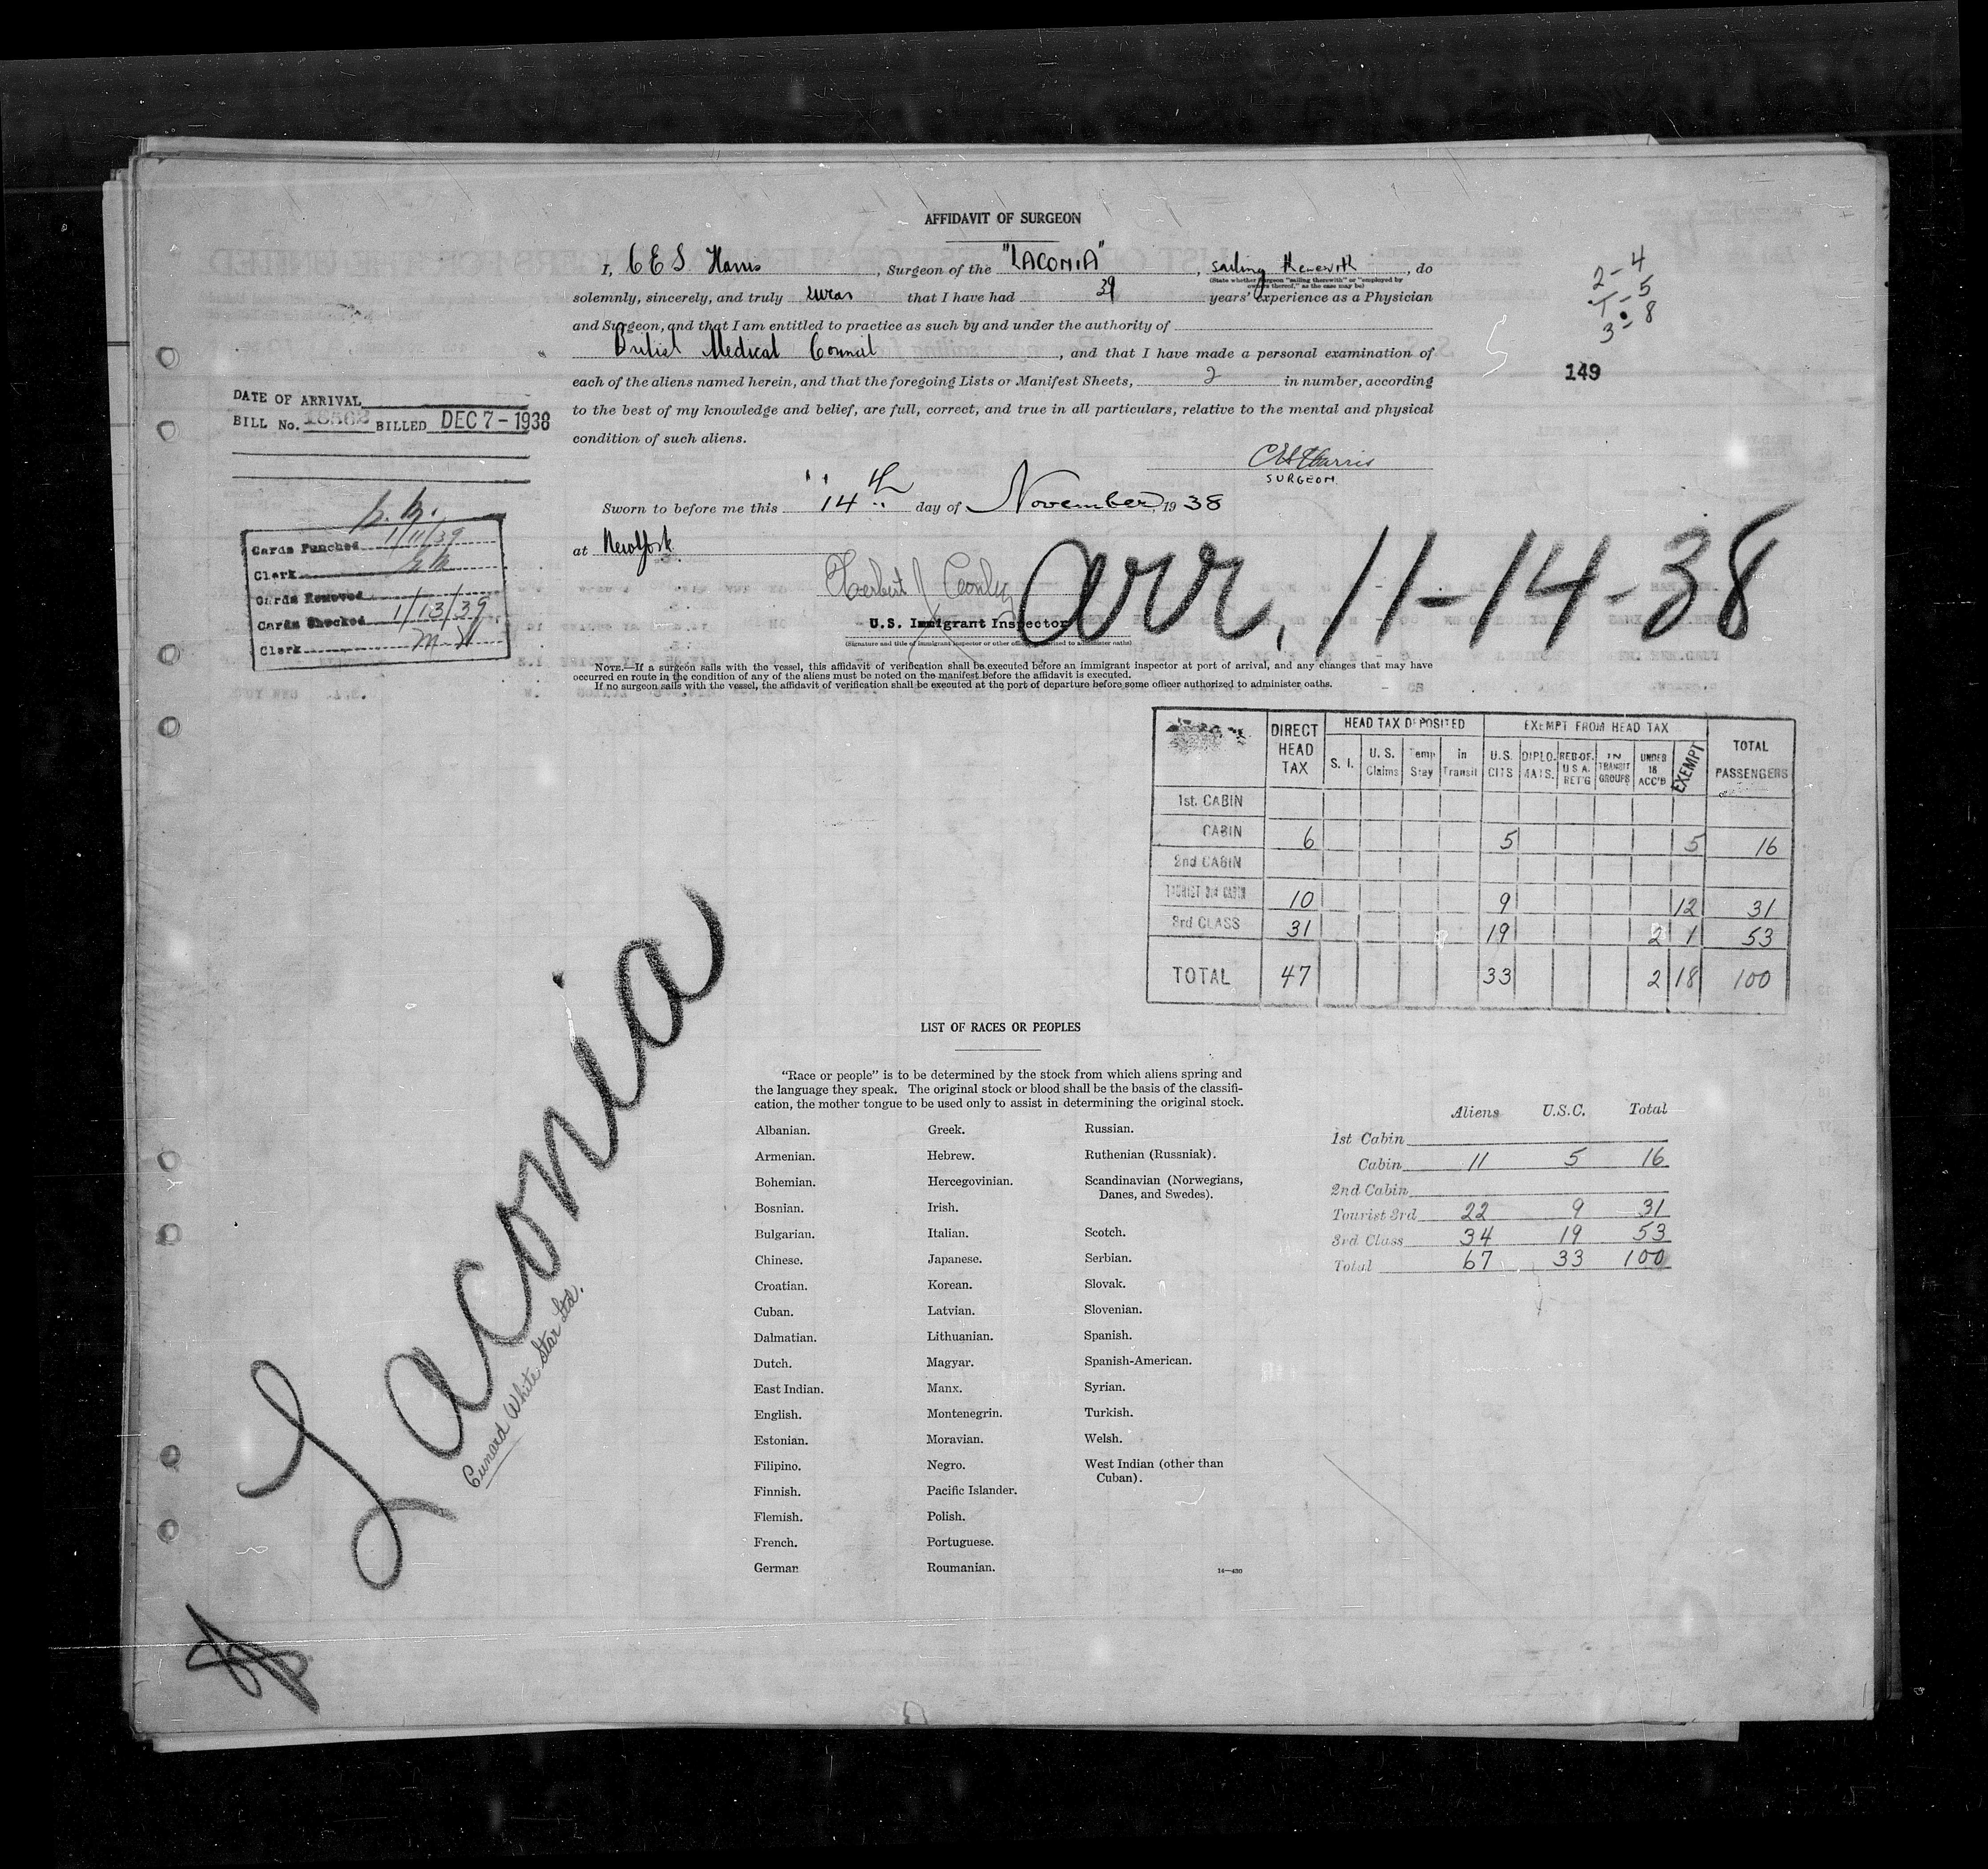 AFFIDAVIT OF SURGEON
I, C E S Harris, Surgeon of the "LACONIA", sailing therewith, do
(State whether surgeon "sailing therewith" or "employed by
owners thereof," as the case may be)
solemnly, sincerely, and truly swear that I have had 39 years' experience as a Physician
and Surgeon, and that I am entitled to practice as such by and under the authority of
British Medical Council, and that I have made a personal examination of
each of the aliens named herein, and that the foregoing Lists or Manifest Sheets, 2 in number, according
to the best of my knowledge and belief, are full, correct, and true in all particulars, relative to the mental and physical
condition of such aliens.
CES Harris
SURGEON
Sworn to before me this 14th day of November, 1938
at New York
Herbert J
U.S. Immigrant Inspector
(Signature and title of immigrant inspector or other officer authorized to administer oaths)
NOTE.—If a surgeon sails with the vessel, this affidavit of verification shall be executed before an immigrant inspector at port of arrival, and any changes that may have
occurred en route in the condition of any of the aliens must be noted on the manifest before the affidavit is executed.
If no surgeon sails with the vessel, the affidavit of verification shall be executed at the port of departure before some officer authorized to administer oaths.
2-4
1-5
3-8
149
DATE OF ARRIVAL
BILL No. BILLED DEC 7-1938
Cards Punched 1/11/39
Clerk
Cards Removed
Cards Checked 1/13/39
Clerk
arr. 11-14-38
DIRECT HEAD TAX HEAD TAX DEPOSITED EXEMPT FROM HEAD TAX TOTAL PASSENGERS
S. I. U. S. Claims Temp Stay in Transit U.S. CITS DIPLO. MATS. RES-OF. U S A. RET'G IN TRANSIT GROUPS UNDER 16 ACC'D EXEMPT
1st. CABIN
CABIN 6 5 5 16
2nd CABIN
TOURIST 3rd CABIN 10 9 12 31
3rd CLASS 31 19 2 1 53
TOTAL 47 33 2 18 100
LIST OF RACES OR PEOPLES
"Race or people" is to be determined by the stock from which aliens spring and
the language they speak. The original stock or blood shall be the basis of the classifi-
cation, the mother tongue to be used only to assist in determining the original stock.
Albanian.
Armenian.
Bohemian.
Bosnian.
Bulgarian.
Chinese.
Croatian.
Cuban.
Dalmatian.
Dutch.
East Indian.
English.
Estonian.
Filipino.
Finnish.
Flemish.
French.
German
Greek.
Hebrew.
Hercegovinian.
Irish.
Italian.
Japanese.
Korean.
Latvian.
Lithuanian.
Magyar.
Manx.
Montenegrin.
Moravian.
Negro.
Pacific Islander.
Polish.
Portuguese.
Roumanian.
Russian.
Ruthenian (Russniak).
Scandinavian (Norwegians,
Danes, and Swedes).
Scotch.
Serbian.
Slovak.
Slovenian.
Spanish.
Spanish-American.
Syrian.
Turkish.
Welsh.
West Indian (other than
Cuban).
14—430
Aliens U.S.C. Total
1st Cabin
Cabin 11 5 16
2nd Cabin
Tourist 3rd 22 9 31
3rd Class 34 19 53
Total 67 33 100
Laconia
Cunard White Star Ltd.